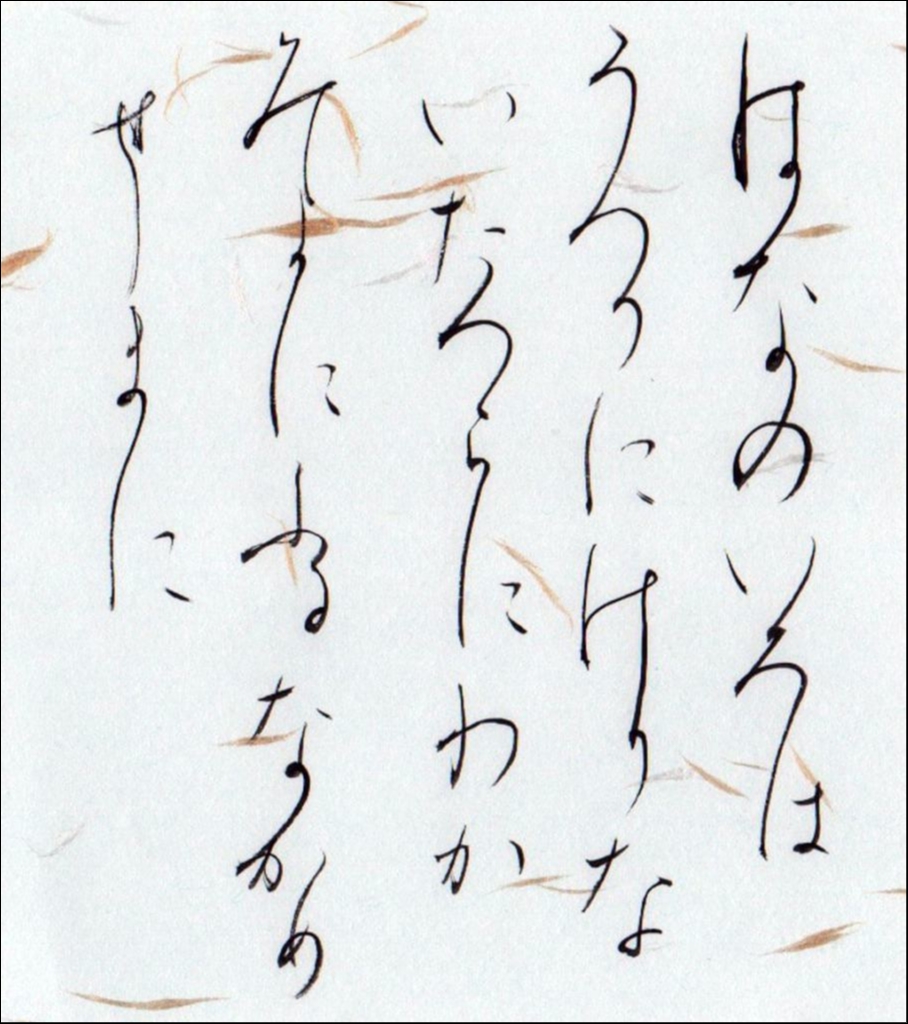 はなのいろは
うつりにけりな
いたつらにわか
みよにふるなかめ
せしまに